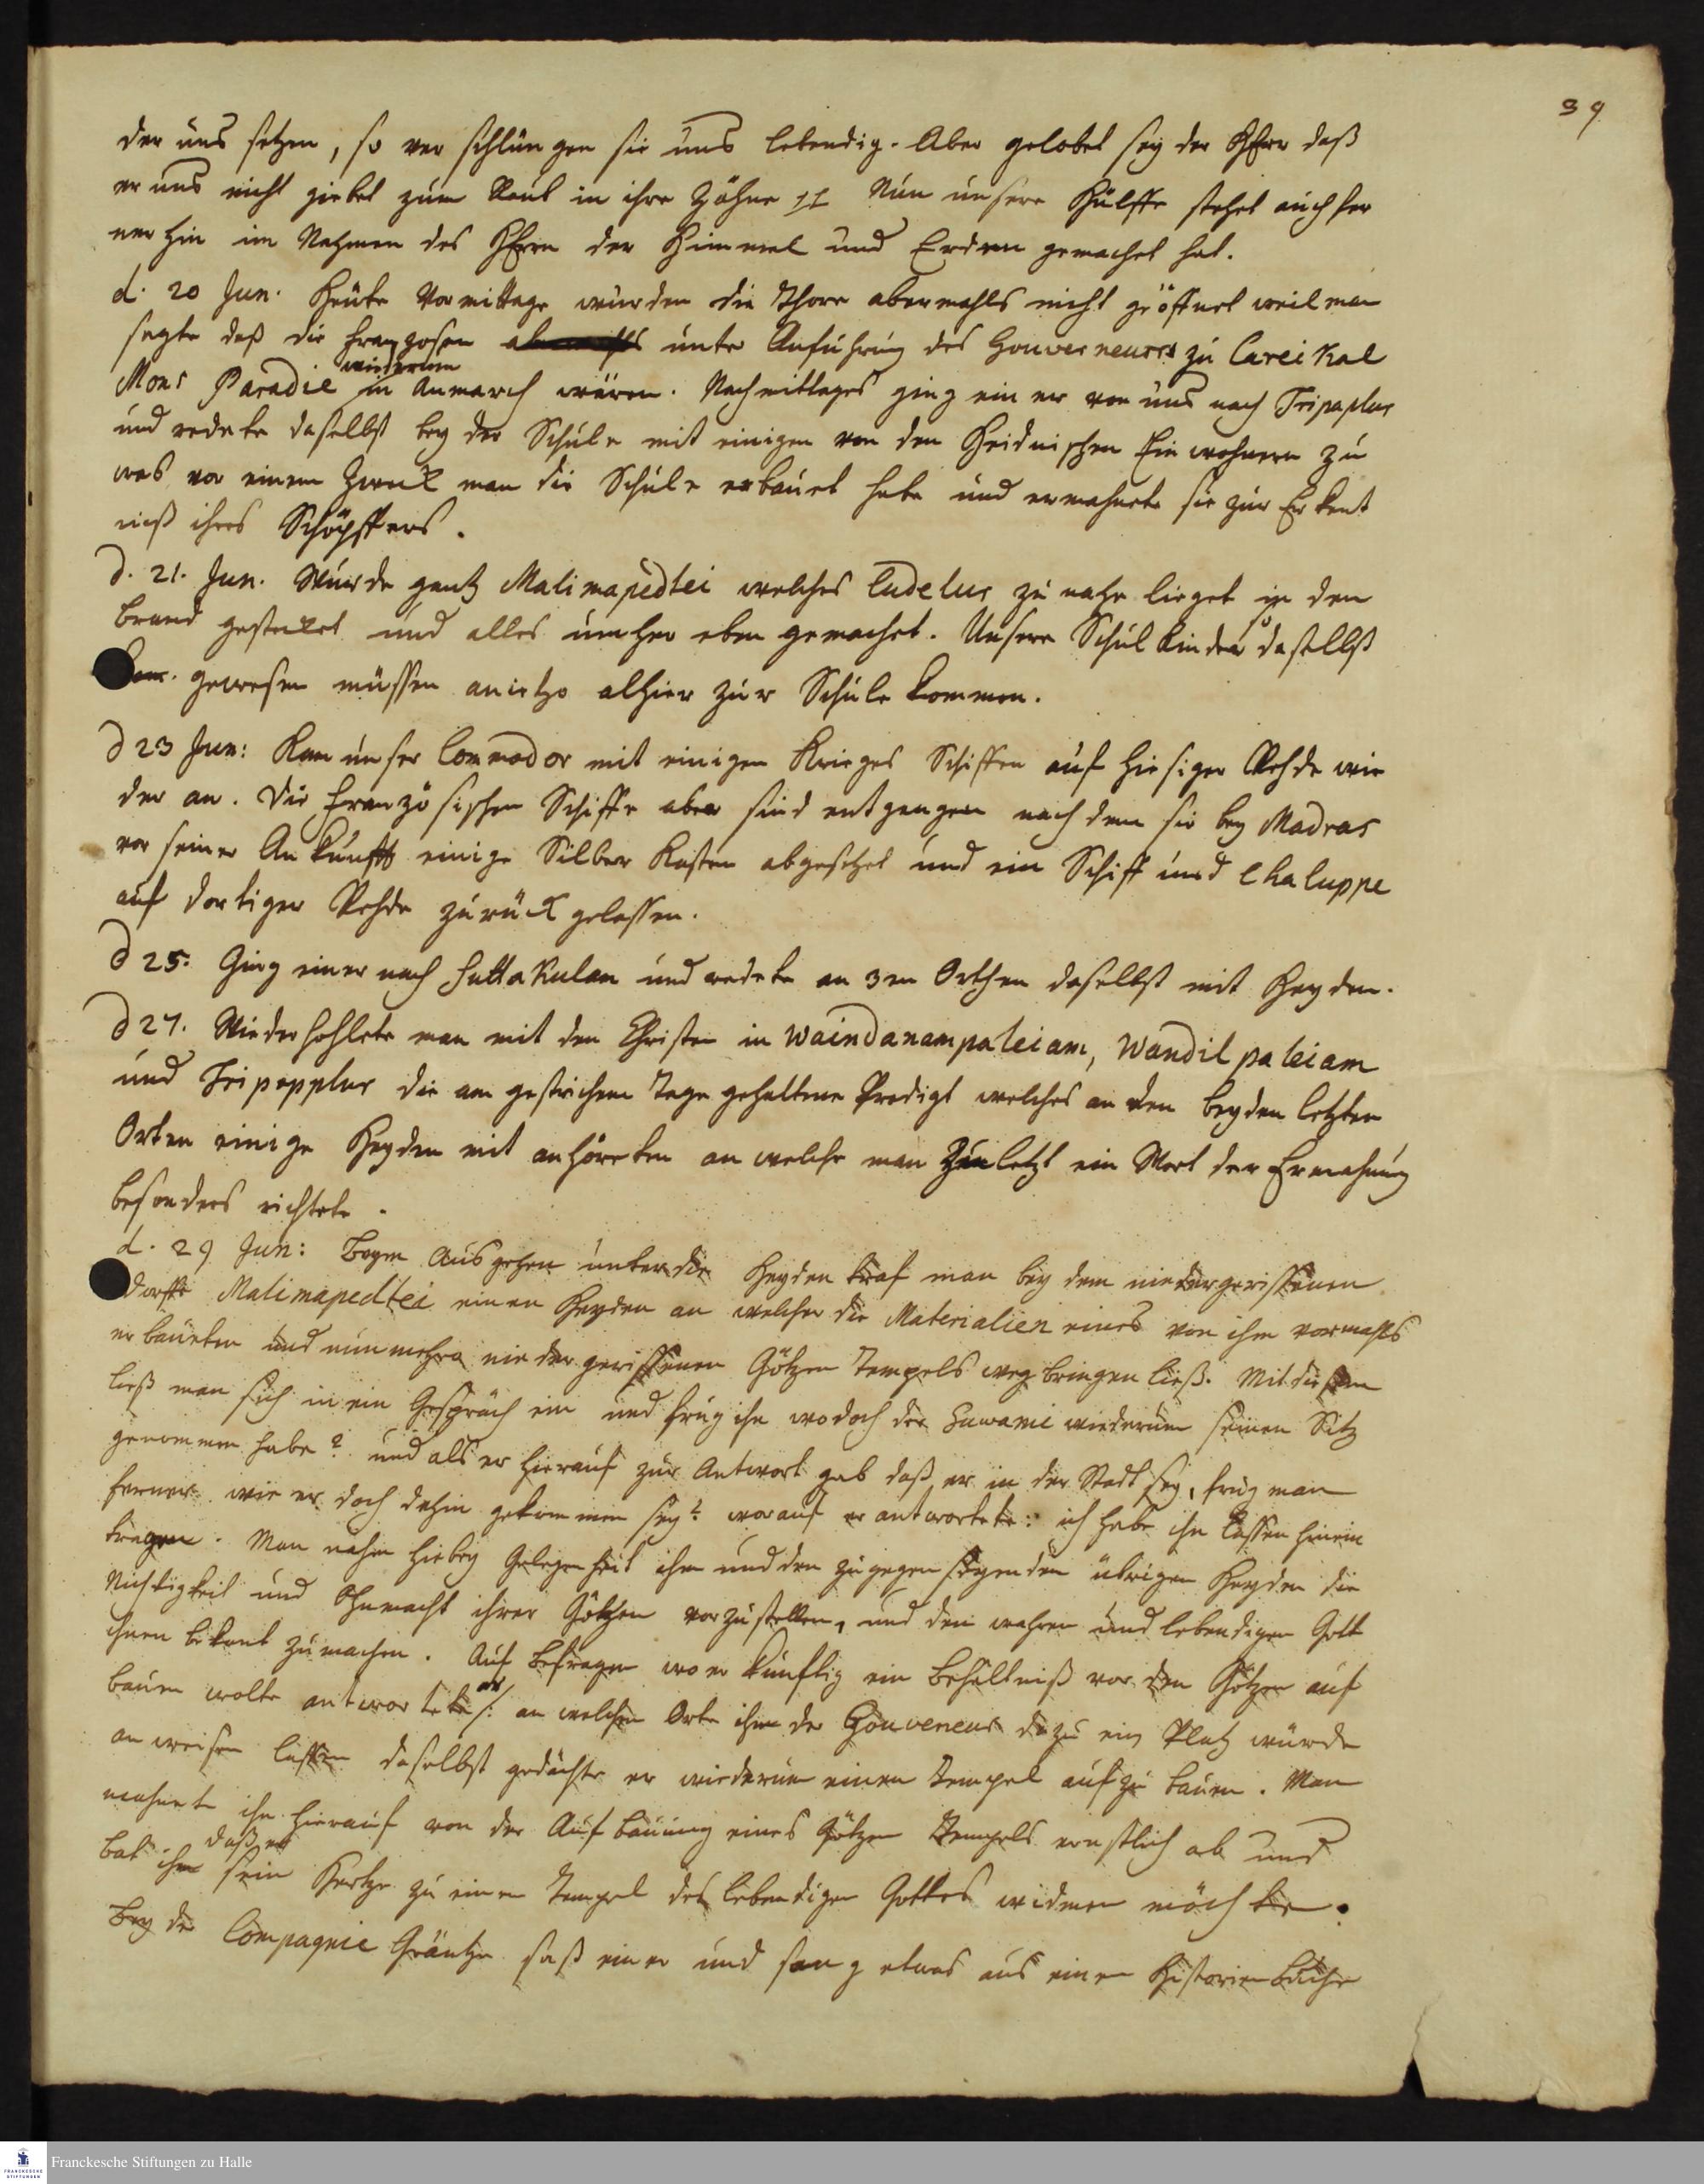 39
der uns setzen, so verschlüngen sie uns lebendig. Aber gelobet sey der HErr daß
er uns nicht giebet zum Raub in ihre Zähne pp Nun unsere Hülffe stehet auch fer
ner hin im Nahmen des HErrn der Himmel und Erden gemachet hat.
d. 20 Jun. Heute Vormittage wurden die Thore abermahls nicht geöffnet weil man
sagte daß die Franzosen unter Anführung des Gouverneurs zu Careikal
wiederum
Mons Paradie in Anmarch wären. Nachmittages ging einer von uns nach Tripaplur
und redete daselbst bey der Schule mit einigen von den Heidnischen Einwohnern zu
was vor einem Zweck man die Schule erbauet habe und ermahnete sie zur Erkent
niß ihres Schöpffers.
d. 21. Jun. Wurde gantz Malimapedtei welches Cudelur zu nahe lieget in den
brand gestecket und alles umher eben gemachet. Unsere Schul Kinder so daselbst
gewesen müssen anietzo alhier zur Schule kommen.
d 23 Jun: Kam unser Commodor mit einigen Krieges Schiffen auf hiesiger Rehde wie
der an. Die Französischen Schiffe aber sind entgangen nach dem sie bey Madras
vor seiner Ankunfft einige Silber Kasten abgesetzet und ein Schiff und Chaluppe
auf dortiger Rehde zurück gelassen.
d 25. Ging einer nach Suttakulam und redete an 3en Orthen daselbst mit Heyden.
d 27. Wiederhohlete man mit den Christen in Waindanampaleiam, Wandilpaleiam
und Tripopplur die am gestrichem Tage gehaltene Predigt welches an den beyden letzten
Orten einige Heyden mit anhöreten an welche man zu letzt ein Wort der Ermahnung
besonders richtete.
d. 29 Jun: Beym Ausgehen unter die Heyden traf man bey dem niedergerissenen
Dorffe Malimapedtei einen Heyden an welcher die Materialien eines von ihm vormahls
erbaueten und nunmehro niedergerissenen Götzen Tempels wegbringen ließ. Mit diesem
ließ man sich in ein Gespräch ein und frug ihn wo doch der Suwami wiederum seinen Sitz
genommen habe? und als er hierauf zur Antwort gab daß er in der Stadt sey, frug man
ferner wie er doch dahin gekommen sey? worauf er antwortete: ich habe ihn lassen hinein
tragen. Man nahm hiebey Gelegenheit ihm und den zugegen seyenden übrigen Heyden die
Nichtigkeit und Ohnmacht ihrer Götzen vorzustellen, und den wahren und lebendigen Gott
ihnen bekant zu machen. Auf Befragen wo er künftig ein Behältniß vor den Götzen auf
bauen wolte antwortete er: an welchen Orte ihm der Gouverneur dazu ein Platz würde
anweisen lassen daselbst gedächte er wiederum einen Tempel aufzubauen. Man
mahnete ihn hierauf von der Aufbauung eines Götzen Tempels ernstlich ab und
daß er
bat ihn sein Hertze zu einem Tempel des lebendigen Gottes widmen möchte.
Bey der Compagnie Gräntze saß einer und sang etwas aus einem Historien Buche
Franckesche Stiftungen zu Halle
FRANCKESCHE STIFTUNGEN